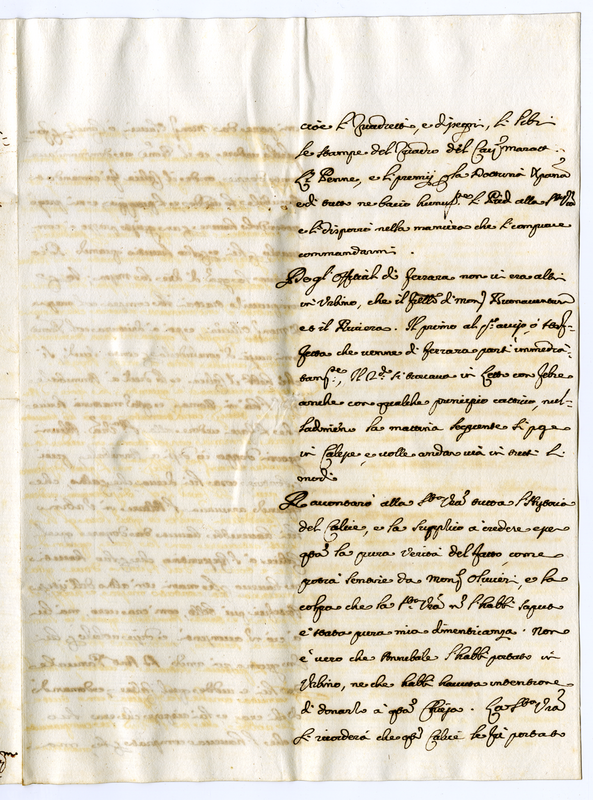 cioè li Quadretti, e disegni, li libri
le stampe del Quadro del Cav.r Maratt
le Penne, e li premij p la Dottrina Xpiana
e di tutto ne bacio humilss.te li Piedi alla S.tà Vrã
e li disporrò nella maniera che si compiace
commandarmi.
Degl'Offitiali di Ferrara non vi era altri
in Urbino, che il fratello di mons.r Buonaventura
et il Riviera. Il primo al p.º aviso è
che venne di Ferrara partì immedia-
tam.te, Il 2.do si trovava in letto con febre
anche con qualche principio cattivo, nul-
ladimeno la mattina seguente si pose
in Calesse, e volle andar via in tutti li
modi
Raccontarò alla S.tà Vrã tutta l'Hystoria
del Calice, e la supplico a credere esser
qstã la pura verità del fatto, come
potrà sentire da Mons.r Olivieri e la
colpa che la S.tà Vrã nõ l'habbi saputo
è stata pura mia dimenticanza. Non
è vero che Annibale l'habbi portato in
Urbino, ne che habbi havuta intentione
di donarlo a qstã Chiesa. La S.tà Vrã
si ricorderà che qstõ Calice le fù portato